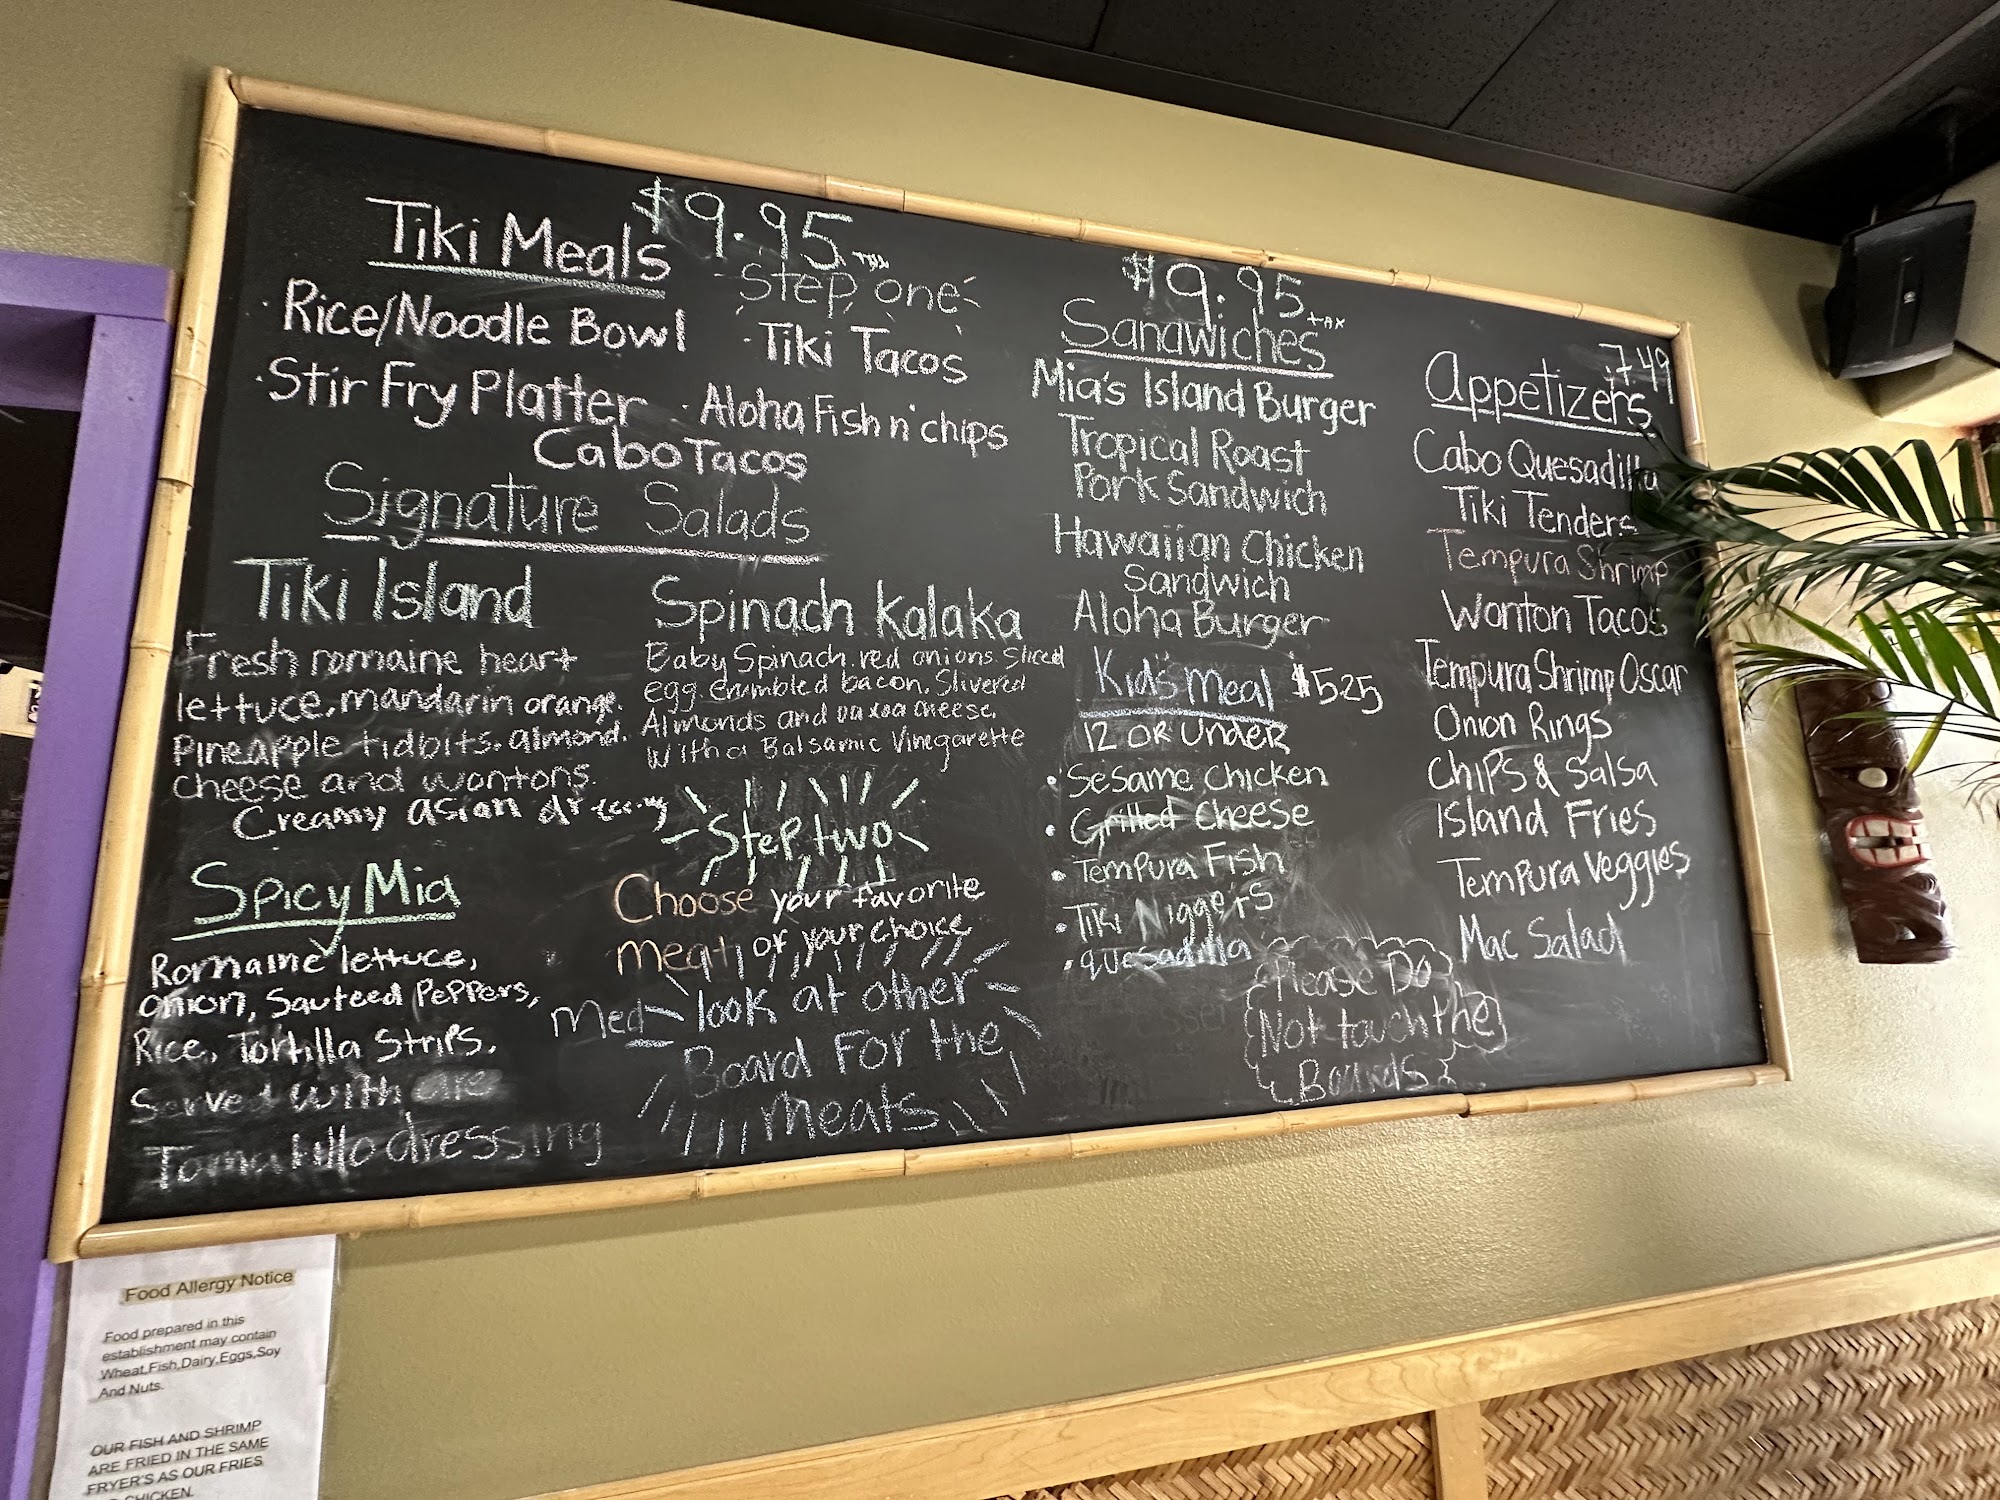 Tiki Meals $9.95
Step one
Rice/Noodle Bowl
Tiki Tacos
Stir Fry Platter
Aloha Fish n' chips
Cabo Tacos
Signature Salads
Tiki Island
Fresh romaine heart
lettuce, mandarin orange.
Pineapple tidbits. almond.
cheese and wontons.
Creamy asian dressing
Spicy Mia
Romaine lettuce,
onion, Sauteed Peppers,
Rice, Tortilla Strips.
Served with
Tomatillo dressing
Spinach Kalaka
Baby Spinach. red onions. Sliced
egg. crumbled bacon. Slivered
Almonds and cheese.
With a Balsamic Vinegarette
Step two
Choose your favorite
meat of your choice
look at other
Board For the
Meats
$9.95 +ax
Sandwiches
Mia's Island Burger
Tropical Roast
Pork Sandwich
Hawaiian Chicken
Sandwich
Aloha Burger
Kid's Meal $5.25
12 or under
• Sesame Chicken
• Grilled Cheese
• Tempura Fish
• Tiki
• Quesadilla
Please Do
Not touch the
Boards
7.49
Appetizers
Cabo Quesadilla
Tiki Tenders
Tempura Shrimp
Wonton Tacos
Tempura Shrimp Oscar
Onion Rings
Chips & Salsa
Island Fries
Tempura Veggies
Mac Salad
Food Allergy Notice
Food prepared in this
establishment may contain
Wheat,Fish,Dairy,Eggs,Soy
And Nuts.
OUR FISH AND SHRIMP
ARE FRIED IN THE SAME
FRYER'S AS OUR FRIES
CHICKEN.